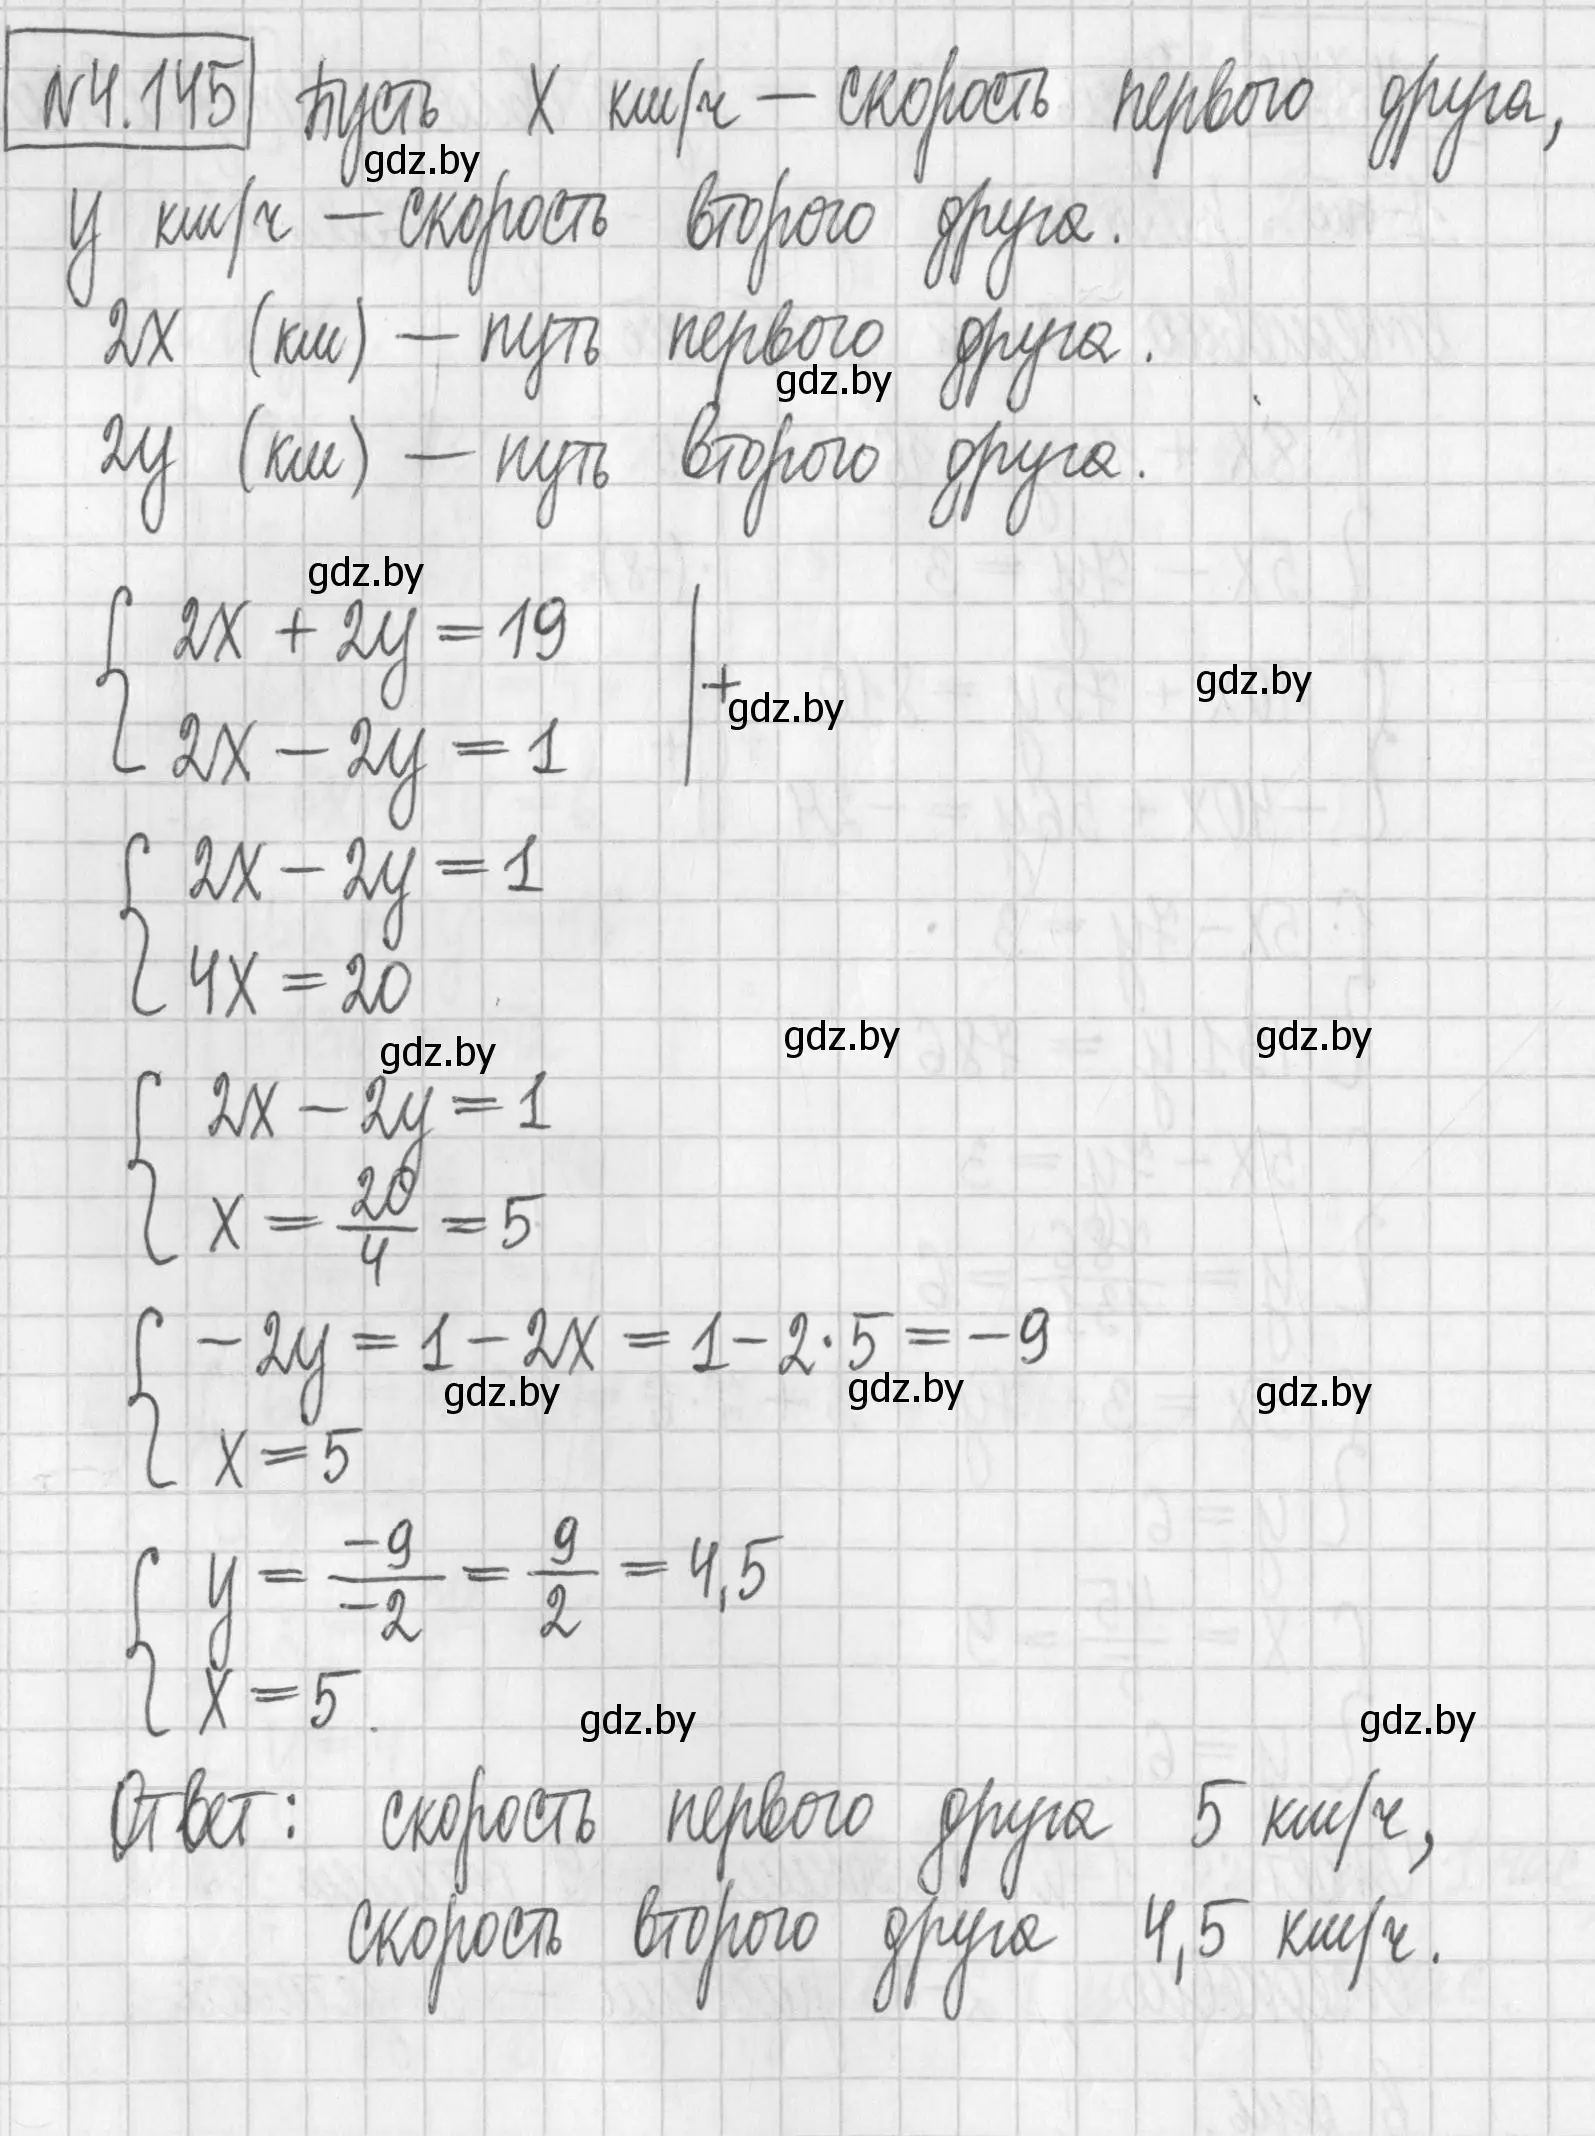 №4.145 Пусть x км/ч — скорость первого друга,
gdz.by
y км/ч — скорость второго друга.
2x (км) — путь первого друга.
gdz.by
2y (км) — путь второго друга.
gdz.by
2x + 2y = 19
gdz.by
+ gdz.by
2x - 2y = 1
2x - 2y = 1
4x = 20
gdz.by gdz.by gdz.by
2x - 2y = 1
x = 20/4 = 5
-2y = 1 - 2x = 1 - 2·5 = -9
gdz.by gdz.by gdz.by
x = 5
y = -9/-2 = 9/2 = 4,5
x = 5.
gdz.by gdz.by
Ответ: скорость первого друга 5 км/ч,
скорость второго друга 4,5 км/ч.